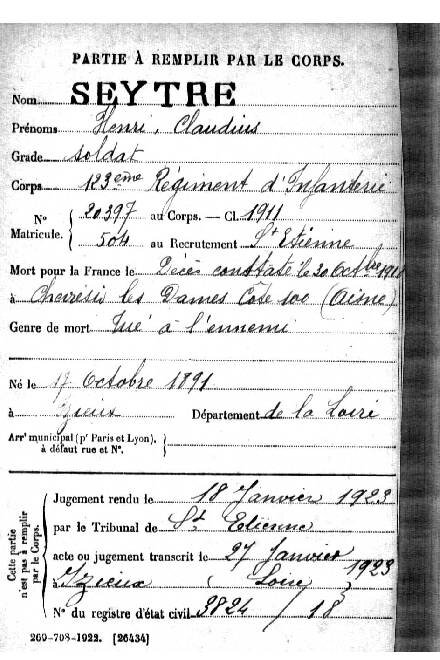 PARTIE À REMPLIR PAR LE CORPS.
Nom SEYTRE
Prénoms Henri, Claudius
Grade soldat
Corps 123ème Régiment d'Infanterie
N° Matricule. { 20397 au Corps. — Cl. 1911
504 au Recrutement St Etienne
Mort pour la France le Décès constaté le 30 Octbre
à Chevresis les Dames Côte 102 (Aisne)
Genre de mort Tué à l'ennemi
Né le 17 Octobre 1891
à Izieux Département de la Loire
Arrt municipal (pr Paris et Lyon), à défaut rue et N°.
Cette partie n'est pas à remplir par le Corps.
Jugement rendu le 18 Janvier 1923
par le Tribunal de St Etienne
acte ou jugement transcrit le 27 Janvier 1923
à Izieux (Loire)
N° du registre d'état civil 3824 / 18
269-708-1922. [26434]